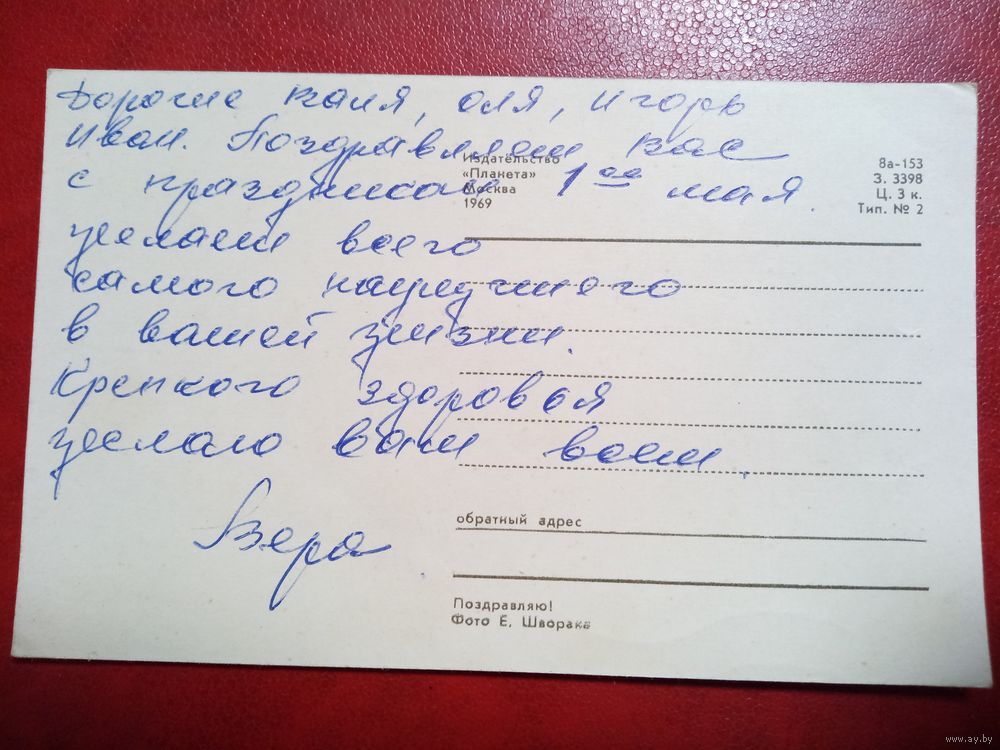 Дорогие Валя, Оля, Игорь
Иван. Поздравляем вас
с праздником 1ое мая.
желаем всего
самого наилучшего
в вашей жизни.
Крепкого здоровья
желаю вам всем.
Вера
Издательство
«Планета»
Москва
1969
8а-153
З. 3398
Ц. 3 к.
Тип. № 2
обратный адрес
Поздравляю!
Фото Е. Шворака
www.ay.by